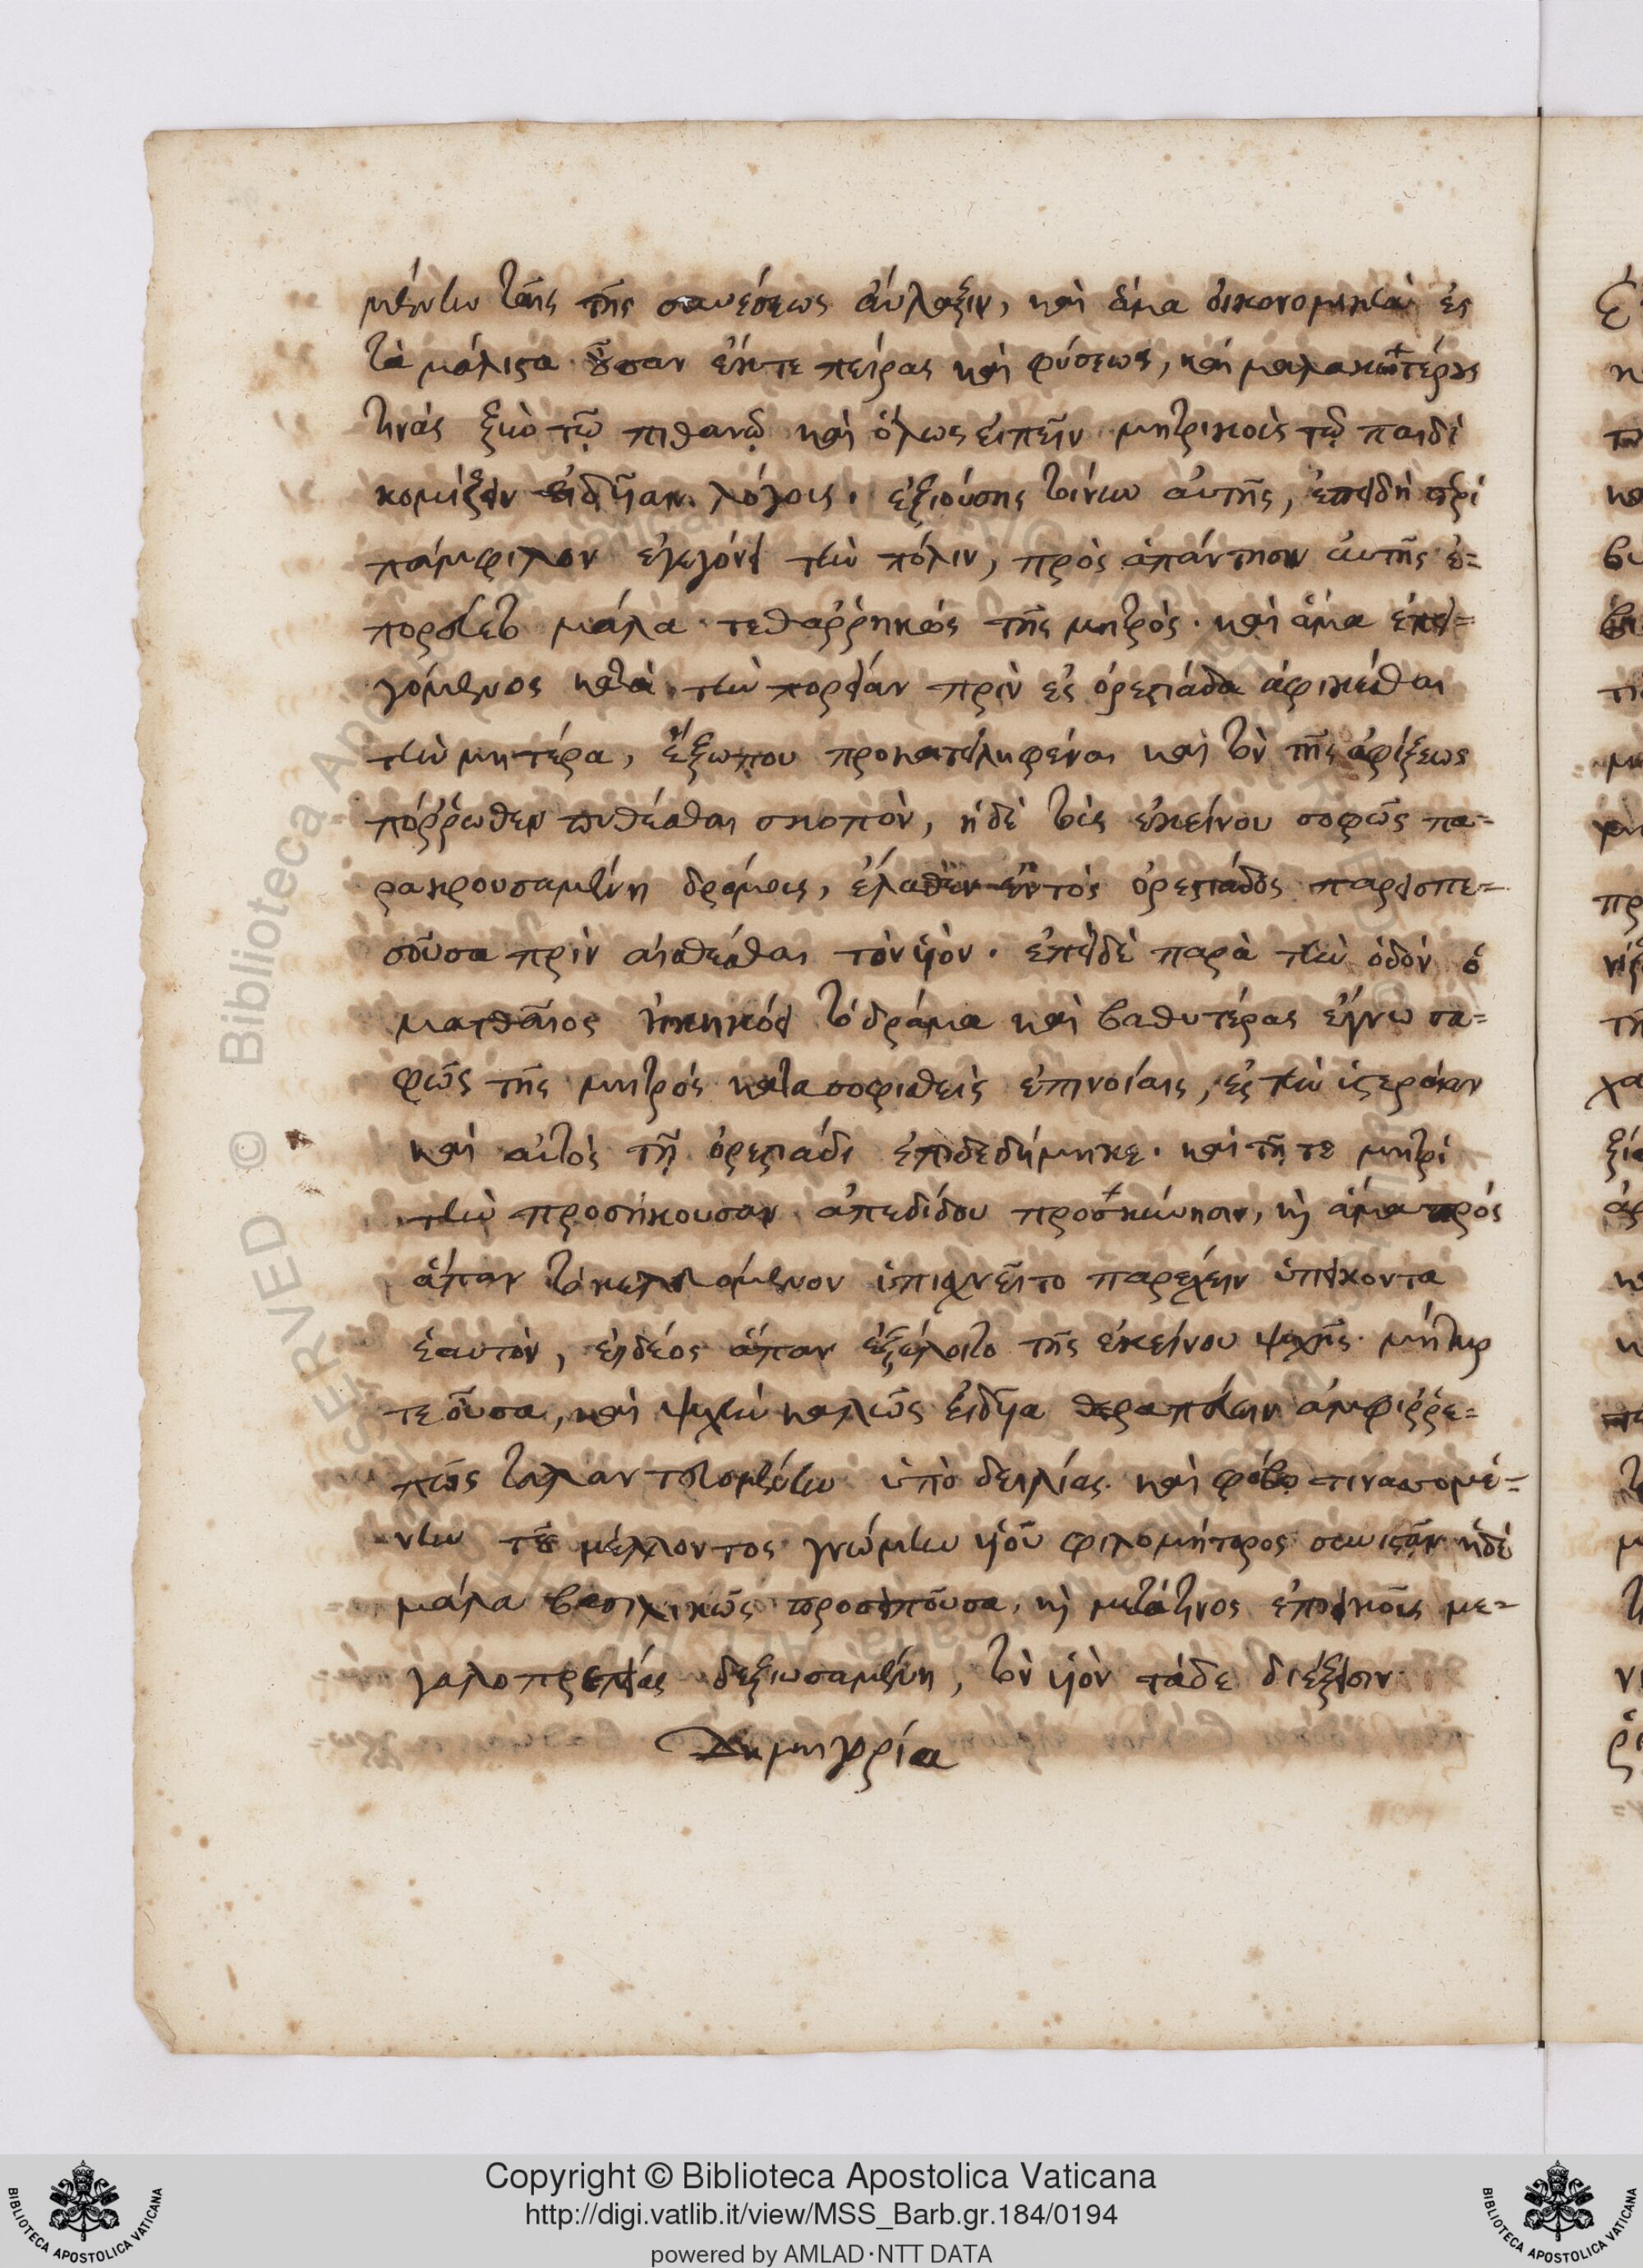 μένην ταῖς τῆς συνέσεως αὔλαξιν, καὶ ἅμα οἰκονομικὴν ἐς
τὰ μάλιστα οὖσαν ἔκ τε πείρας καὶ φύσεως, καὶ μαλακωτέρους
τινὰς ξὺν τῷ πιθανῷ καὶ ὅλως εἰπεῖν μητρικοὺς τῷ παιδὶ
κομίζειν εἰδυῖαν λόγους. ἐξιούσης τοίνυν αὐτῆς, ἐπειδὴ περὶ
πάμφιλον ἐγεγόνει τὴν πόλιν, πρὸς ἀπάντησιν αὐτῆς ἐ=
πορεύετο μάλα τεθαῤῥηκώς τῆς μητρός. καὶ ἅμα ἐπει=
γόμενος κατὰ τὴν πορείαν πρὶν ἐς ὀρεστιάδα ἀφικέσθαι
τὴν μητέρα, ἔξω που προκατειληφέναι καὶ τὸν τῆς ἀφίξεως
πόῤῥωθεν πυθέσθαι σκοπὸν, ἡ δὲ τοὺς ἐκείνου σοφῶς πα=
ρακρουσαμένη δρόμους, ἔλαθεν ἐντὸς ὀρεστιάδος παρεισπε=
σοῦσα πρὶν αἰσθέσθαι τὸν ὑιόν. ἐπεὶ δὲ παρὰ τὴν ὁδόν ὁ
ματθαῖος ἠκηκόει τὸ δράμα καὶ βαθυτέρας ἔγνω σα=
φῶς τῆς μητρός κατασοφισθεὶς ἐπινοίαις, ἐς τὴν ὑστεραίαν
καὶ αὐτὸς τῇ ὀρεστιάδι ἐπιδεδήμηκε. καὶ τῇ τε μητρὶ
τὴν προσήκουσαν ἀπεδίδου προσκύνησιν, καὶ ἅμα πρὸς
ἅπαν τὸ κελευόμενον ὑπισχνεῖτο παρέχειν ὑπείκοντα
ἑαυτόν, εἰ δέος ἅπαν ἐξέλοιτο τῆς ἐκείνου ψυχῆς. μήτηρ
τε οὖσα, καὶ ψυχὴν καλῶς εἰδυῖα θεραπεύειν ἀμφιῤῥε=
πῶς ταλαντευομένην ὑπὸ δειλίας καὶ φόβῳ τινασσομέ=
νην τοῦ μέλλοντος γνώμην ὑιοῦ φιλομήτορος συνιστᾶν ἡ δὲ
μάλα βασιλικῶς προσιποῦσα, καὶ μετά τινος ἐπιεικοῦς με=
γαλοπρεπείας δεξιωσαμένη, τὸν ὑιὸν τάδε διέξεισιν
Δημηγορία
Copyright © Biblioteca Apostolica Vaticana
http://digi.vatlib.it/view/MSS_Barb.gr.184/0194
powered by AMLAD·NTT DATA
BIBLIOTECA APOSTOLICA VATICANA
BIBLIOTECA APOSTOLICA VATICANA